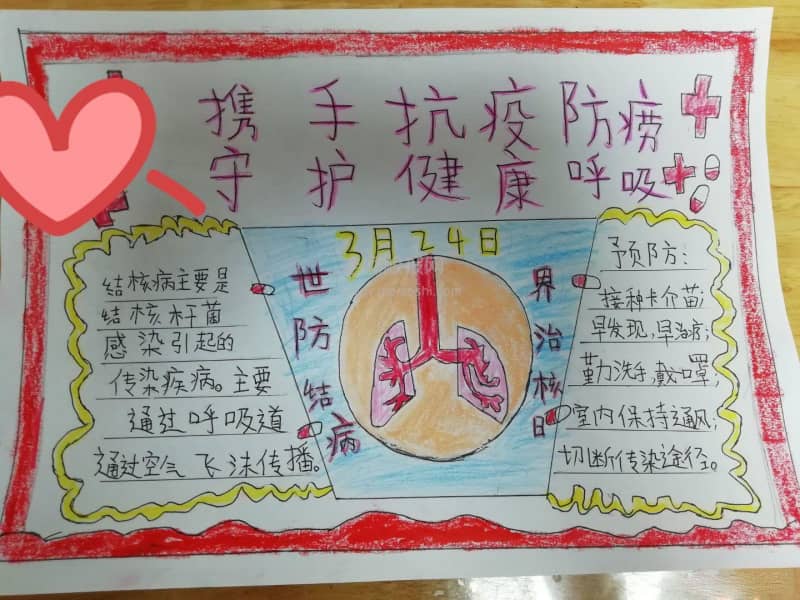 携手抗疫防痨
守护健康呼吸
3月24日
结核病主要是
结核杆菌
感染引起的
传染疾病。主要
通过呼吸道
通过空气飞沫传播。
世界
防治
结核
病日
予页防:
接种卡介苗;
早发现,早治疗;
勤力洗手,戴口罩;
室内保持通风;
切断传染途径。